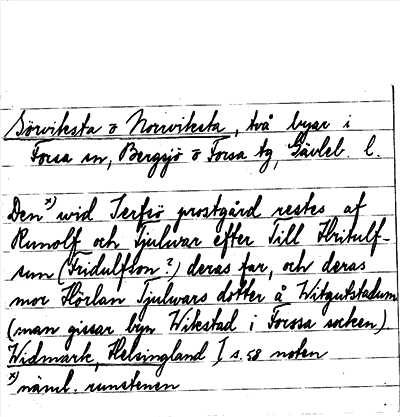 Sörviksta o Norrviksta, två byar i
Forsa sn, Bergsjö o Forsa tg, Gävleb. l.
Den x) wid Jerfsö prostgård restes af
Runolf och Tjulwar efter Till Hritulf-
sun (Fridulfson?) deras far, och deras
mor Hörlan Tjulwars dotter å Witgutstadum
(man gissar byn Wikstad i Forssa socken)
Widmark, Helsingland I s. 58 noten
x) näml. runstenen